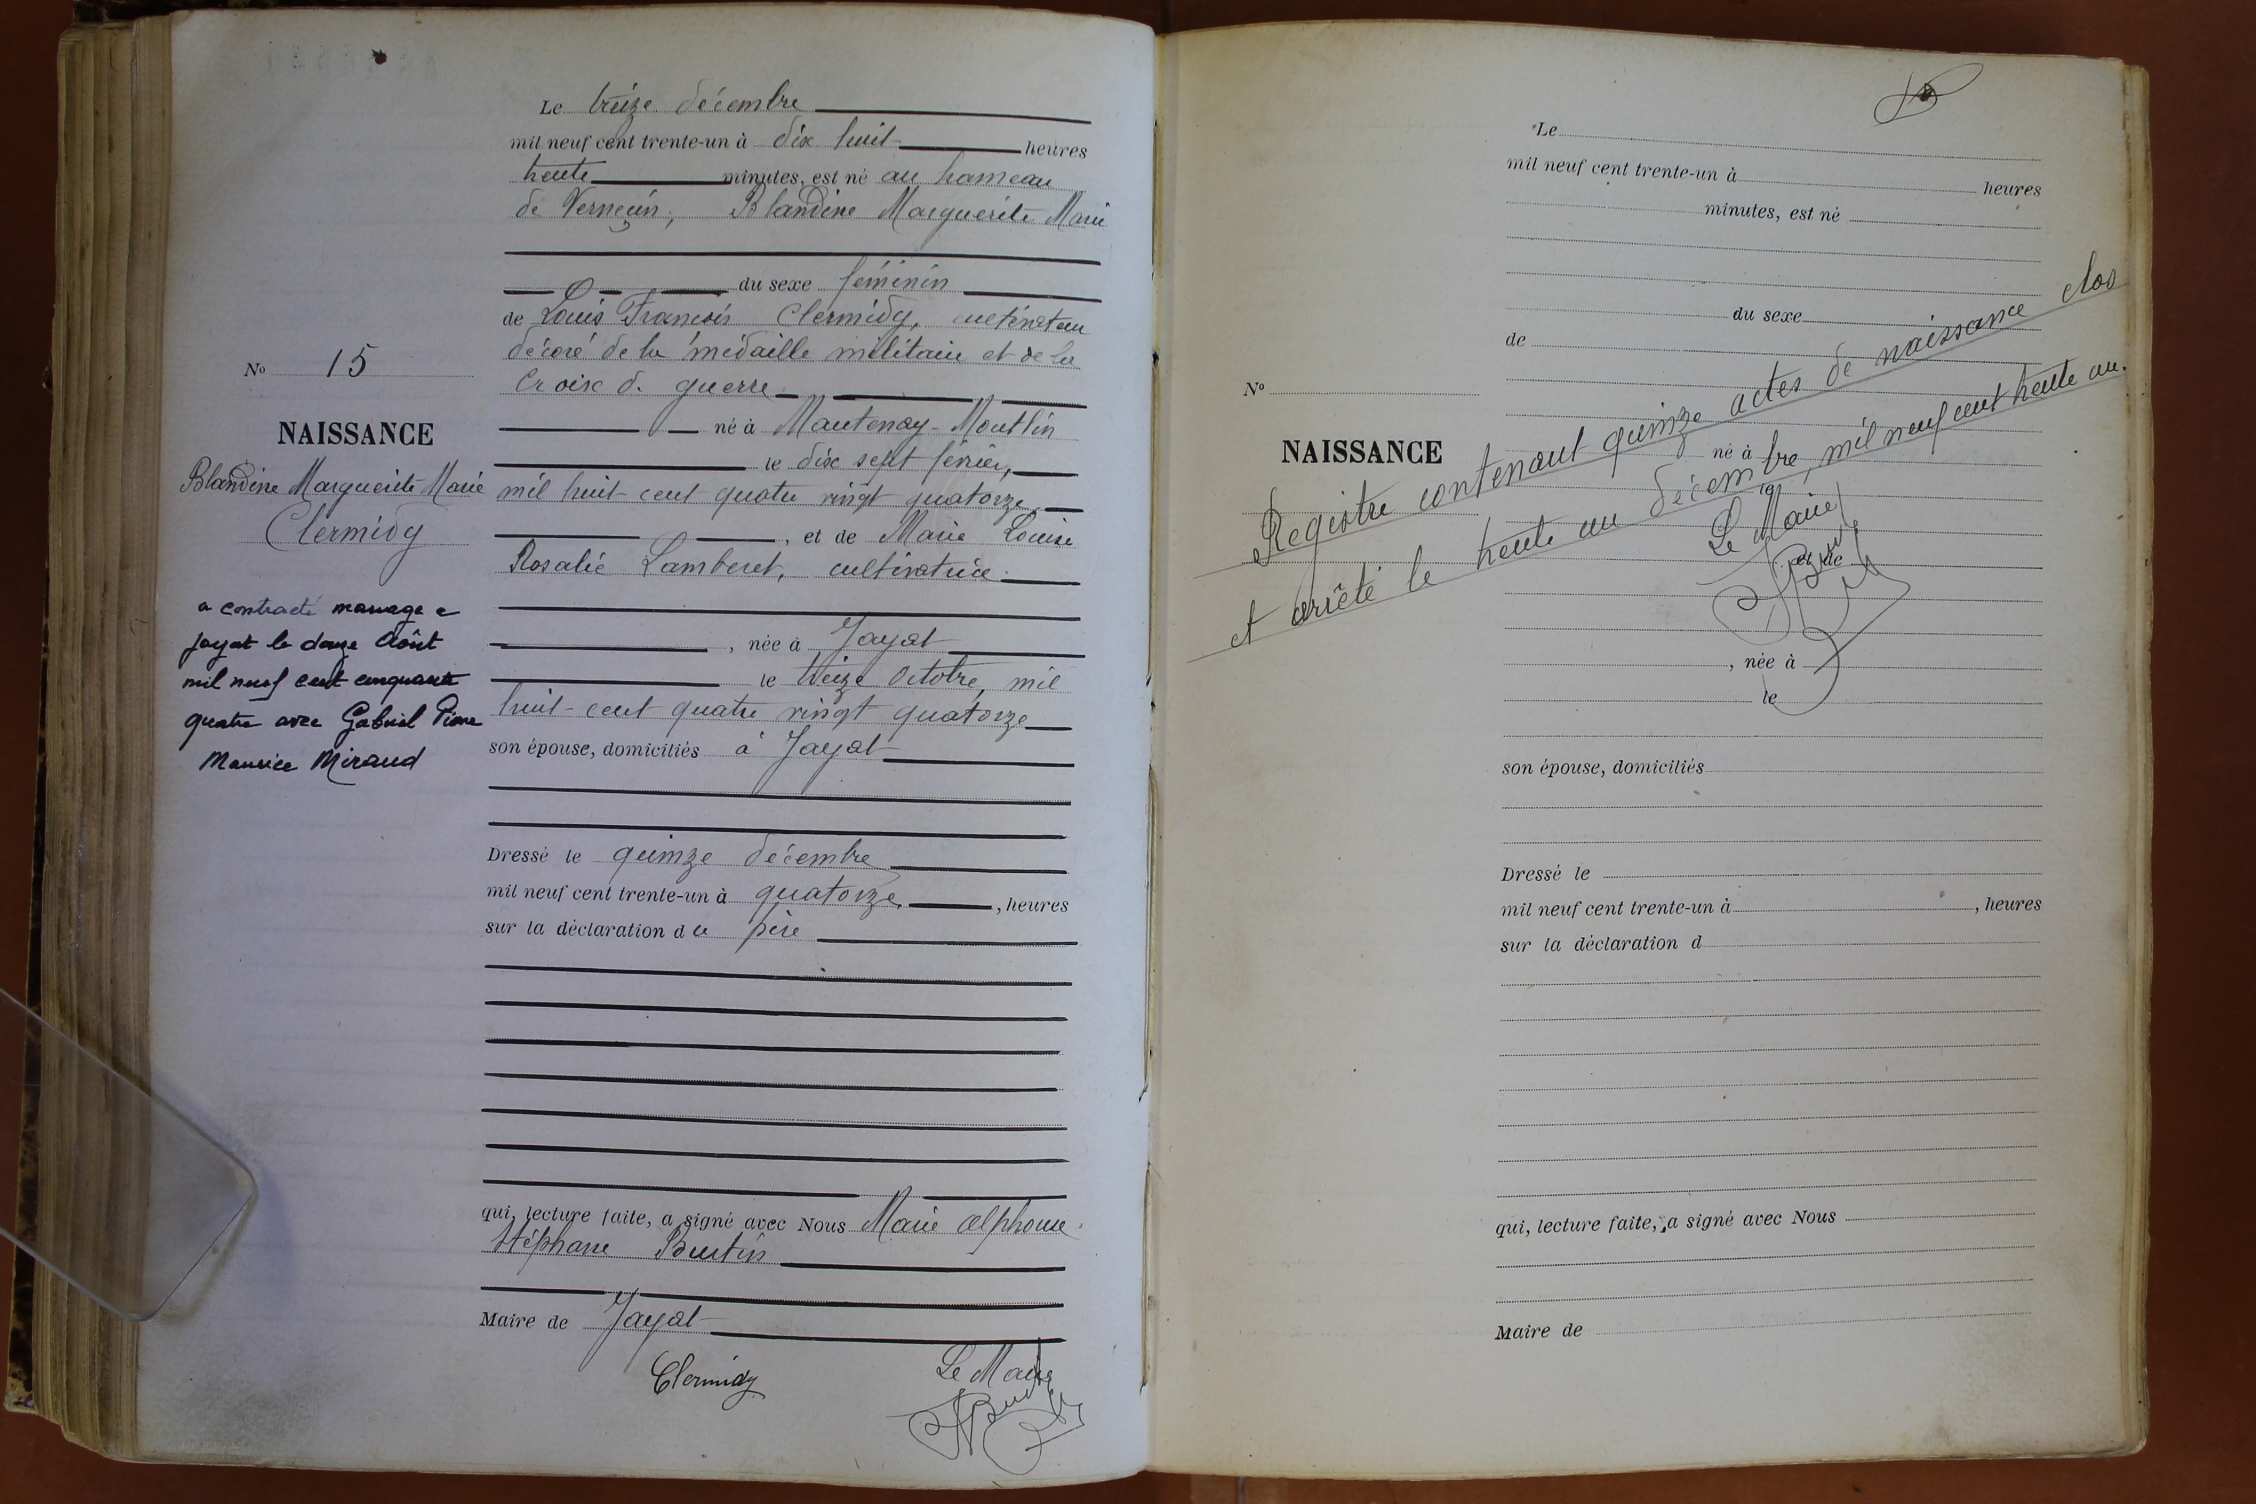 Le treize décembre
mil neuf cent trente-un à dix huit heures
trente minutes, est né au hameau
de Verneçin, Blandine Marguerite Marie
du sexe féminin
de Louis François Clermidy, cultivateur
décoré de la médaille militaire et de la
Croix de guerre
né à Mantenay-Montlin
le dix sept février,
mil huit-cent quatre vingt quatorze
, et de Marie Louise
Rosalie Lamberet, cultivatrice
, née à Jayat
le treize Octobre, mil
huit-cent quatre vingt quatorze
son épouse, domiciliés à Jayat
Dressé le quinze décembre
mil neuf cent trente-un à quatorze, heures
sur la déclaration du père
qui, lecture faite, a signé avec Nous Marie Alphonse
Stéphane Burtin
Maire de Jayat
Clermidy
Le Maire
No 15
NAISSANCE
Blandine Marguerite Marie
Clermidy
a contracté mariage a
Jayat le douze Août
mil neuf cent cinquante
quatre avec Gabriel Pierre
Maurice Miraud
Le
mil neuf cent trente-un à heures
minutes, est né
du sexe
de
né à
le
et de
, née à
le
son épouse, domiciliés
Dressé le
mil neuf cent trente-un à , heures
sur la déclaration d
qui, lecture faite, a signé avec Nous
Maire de
No
NAISSANCE
Registre contenant quinze actes de naissance clos
et arrêté le trente un décembre, mil neuf cent trente un.
Le Maire